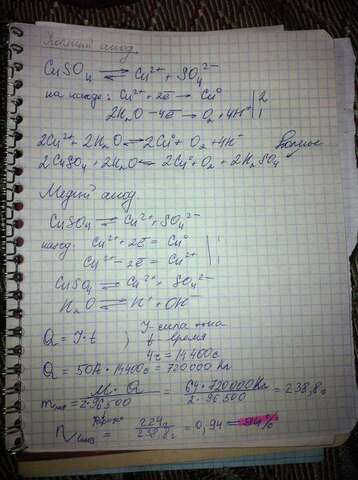 анод.
CuSO₄ ⇌ Cu²⁺ + SO₄²⁻
на катоде: Cu²⁺ + 2ē → Cu⁰ | 2
2H₂O − 4ē → O₂ + 4H⁺ | 1
2Cu²⁺ + 2H₂O ⇌ 2Cu⁰ + O₂ + 4H⁺
2CuSO₄ + 2H₂O ⇌ 2Cu⁰ + O₂ + 2H₂SO₄
Медный анод
CuSO₄ ⇌ Cu²⁺ + SO₄²⁻
катод: Cu²⁺ + 2ē = Cu⁰ | 1
Cu²⁺ − 2ē = Cu⁰ | 1
CuSO₄ ⇌ Cu²⁺ + SO₄²⁻
H₂O ⇌ H⁺ + OH⁻
Q = I·t ; I - сила тока
t - время
4ч = 14400с
Q = 50А · 14400с = 720000 Кл
m = M · Q / 2·96500 = 64 · 720000Кл / 2·96500 = 238,8г
η = 224г / 238,8г = 0,94 = 94%